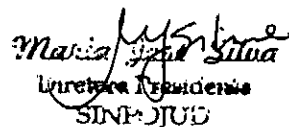 Maria José Silva
Diretora Presidente
SINPOJUD